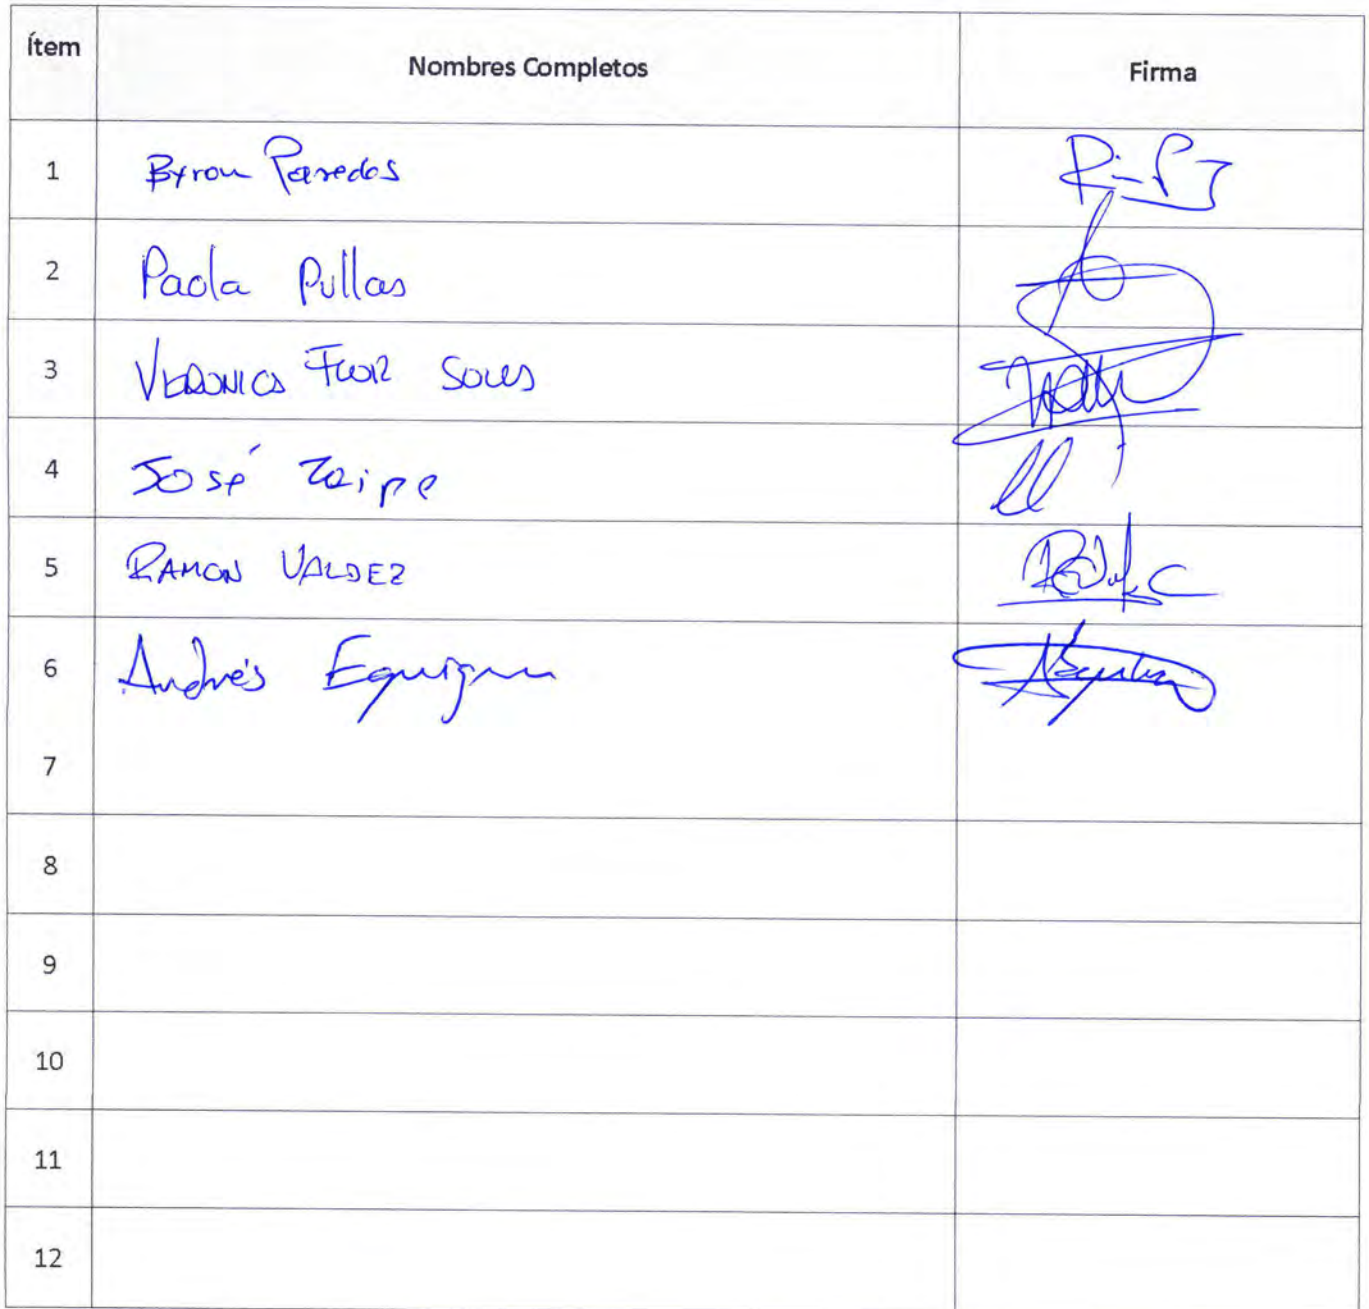 Ítem Nombres Completos Firma
1 Byron Paredes
2 Paola Pullas
3 VERONICA FLOR SOLIS
4 José Taipe
5 RAMON VALDEZ
6 Andrés
7
8
9
10
11
12